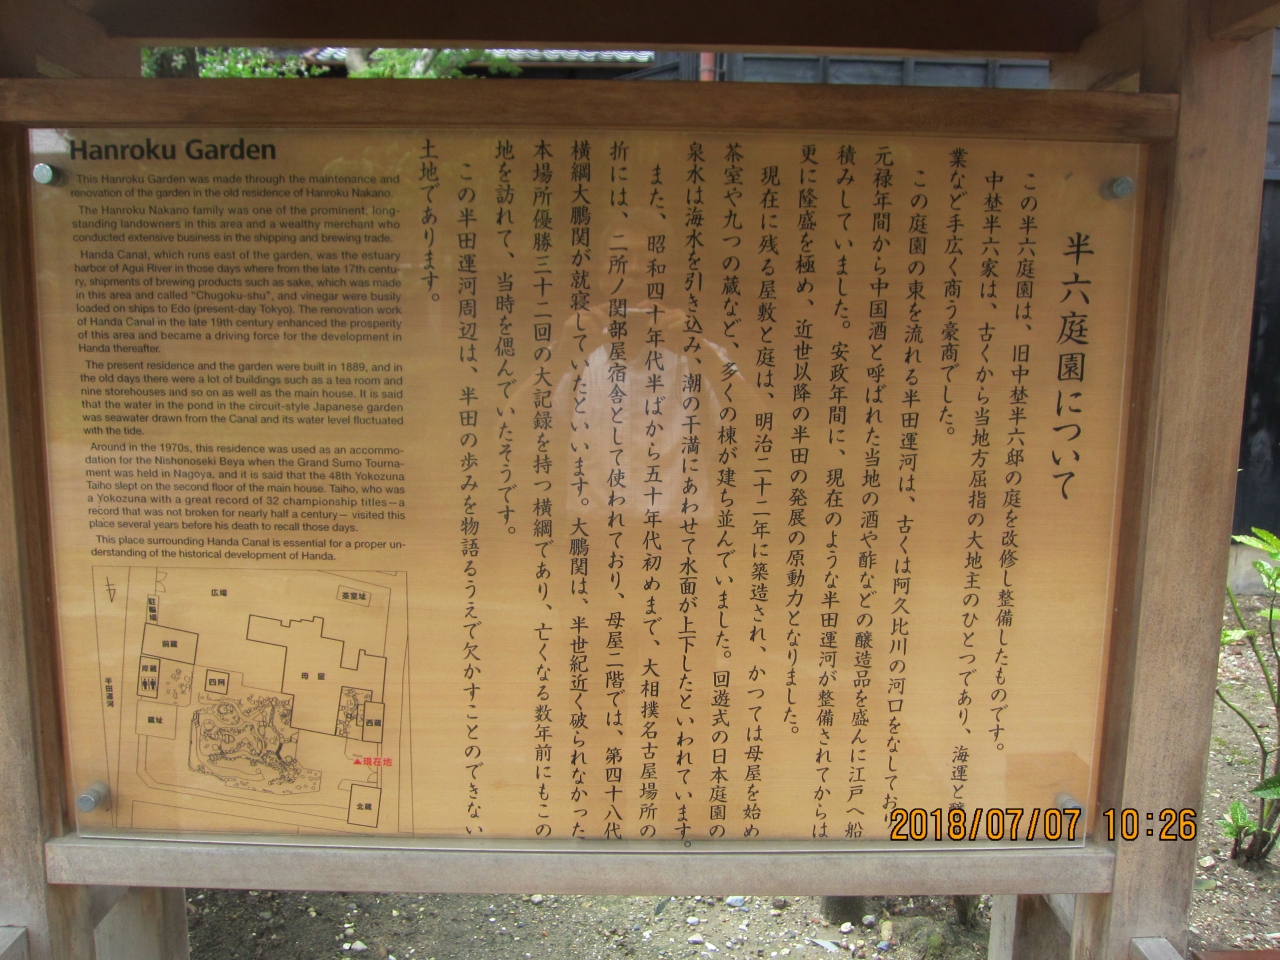 半六庭園について
この半六庭園は、旧中埜半六邸の庭を改修し整備したものです。
中埜半六家は、古くから当地方屈指の大地主のひとつであり、海運と醸
業など手広く商う豪商でした。
この庭園の東を流れる半田運河は、古くは阿久比川の河口をなしており
元禄年間から中国酒と呼ばれた当地の酒や酢などの醸造品を盛んに江戸へ船
積みしていました。安政年間に、現在のような半田運河が整備されてからは
更に隆盛を極め、近世以降の半田の発展の原動力となりました。
現在に残る屋敷と庭は、明治二十二年に築造され、かつては母屋を始め
茶室や九つの蔵など、多くの棟が建ち並んでいました。回遊式の日本庭園の
泉水は海水を引き込み、潮の干満にあわせて水面が上下したといわれています。
また、昭和四十年代半ばから五十年代初めまで、大相撲名古屋場所の
折には、二所ノ関部屋宿舎として使われており、母屋二階では、第四十八代
横綱大鵬関が就寝していたといいます。大鵬関は、半世紀近く破られなかった
本場所優勝三十二回の大記録を持つ横綱であり、亡くなる数年前にもこの
地を訪れて、当時を偲んでいたそうです。
この半田運河周辺は、半田の歩みを物語るうえで欠かすことのできない
土地であります。
Hanroku Garden
This Hanroku Garden was made through the maintenance and
renovation of the garden in the old residence of Hanroku Nakano.
The Hanroku Nakano family was one of the prominent, long-
standing landowners in this area and a wealthy merchant who
conducted extensive business in the shipping and brewing trade.
Handa Canal, which runs east of the garden, was the estuary
harbor of Agui River in those days where from the late 17th centu-
ry, shipments of brewing products such as sake, which was made
in this area and called "Chugoku-shu", and vinegar were busily
loaded on ships to Edo (present-day Tokyo). The renovation work
of Handa Canal in the late 19th century enhanced the prosperity
of this area and became a driving force for the development in
Handa thereafter.
The present residence and the garden were built in 1889, and in
the old days there were a lot of buildings such as a tea room and
nine storehouses and so on as well as the main house. It is said
that the water in the pond in the circuit-style Japanese garden
was seawater drawn from the Canal and its water level fluctuated
with the tide.
Around in the 1970s, this residence was used as an accommo-
dation for the Nishonoseki Beya when the Grand Sumo Tourna-
ment was held in Nagoya, and it is said that the 48th Yokozuna
Taiho slept on the second floor of the main house. Taiho, who was
a Yokozuna with a great record of 32 championship titles—a
record that was not broken for nearly half a century— visited this
place several years before his death to recall those days.
This place surrounding Handa Canal is essential for a proper un-
derstanding of the historical development of Handa.
広場
茶室址
駐輪場
前蔵
岸蔵
四阿
母屋
西蔵
蔵址
半田運河
▲現在地
北蔵
2018/07/07 10:26